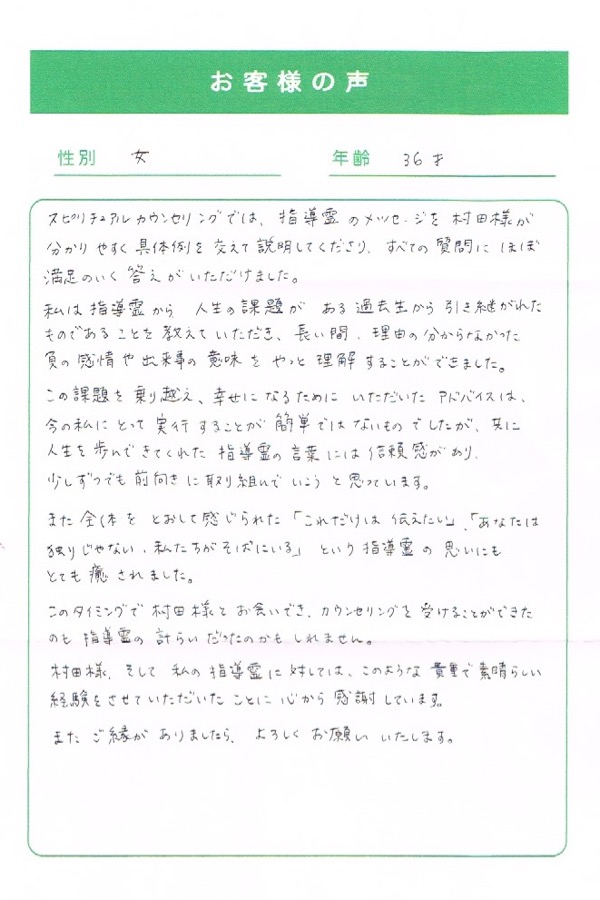 お客様の声
性別 女 年齢 36才
スピリチュアルカウンセリングでは、指導霊のメッセージを村田様が
分かりやすく具体例を交えて説明してくださり、すべての質問にほぼ
満足のいく答えがいただけました。
私は指導霊から人生の課題がある過去生から引き継がれた
ものであることを教えていただき、長い間、理由の分からなかった
負の感情や出来事の意味をやっと理解することができました。
この課題を乗り越え、幸せになるためにいただいたアドバイスは、
今の私にとって実行することが簡単ではないものでしたが、共に
人生を歩んできてくれた指導霊の言葉には信頼感があり、
少しずつでも前向きに取り組んでいこうと思っています。
また全体をとおして感じられた「これだけは伝えたい」、「あなたは
独りじゃない、私たちがそばにいる」という指導霊の思いにも
とても癒されました。
このタイミングで村田様とお会いでき、カウンセリングを受けることができた
のも指導霊の計らいだったのかもしれません。
村田様、そして私の指導霊に対しては、このような貴重で素晴らしい
経験をさせていただいたことに心から感謝しています。
またご縁がありましたら、よろしくお願いいたします。